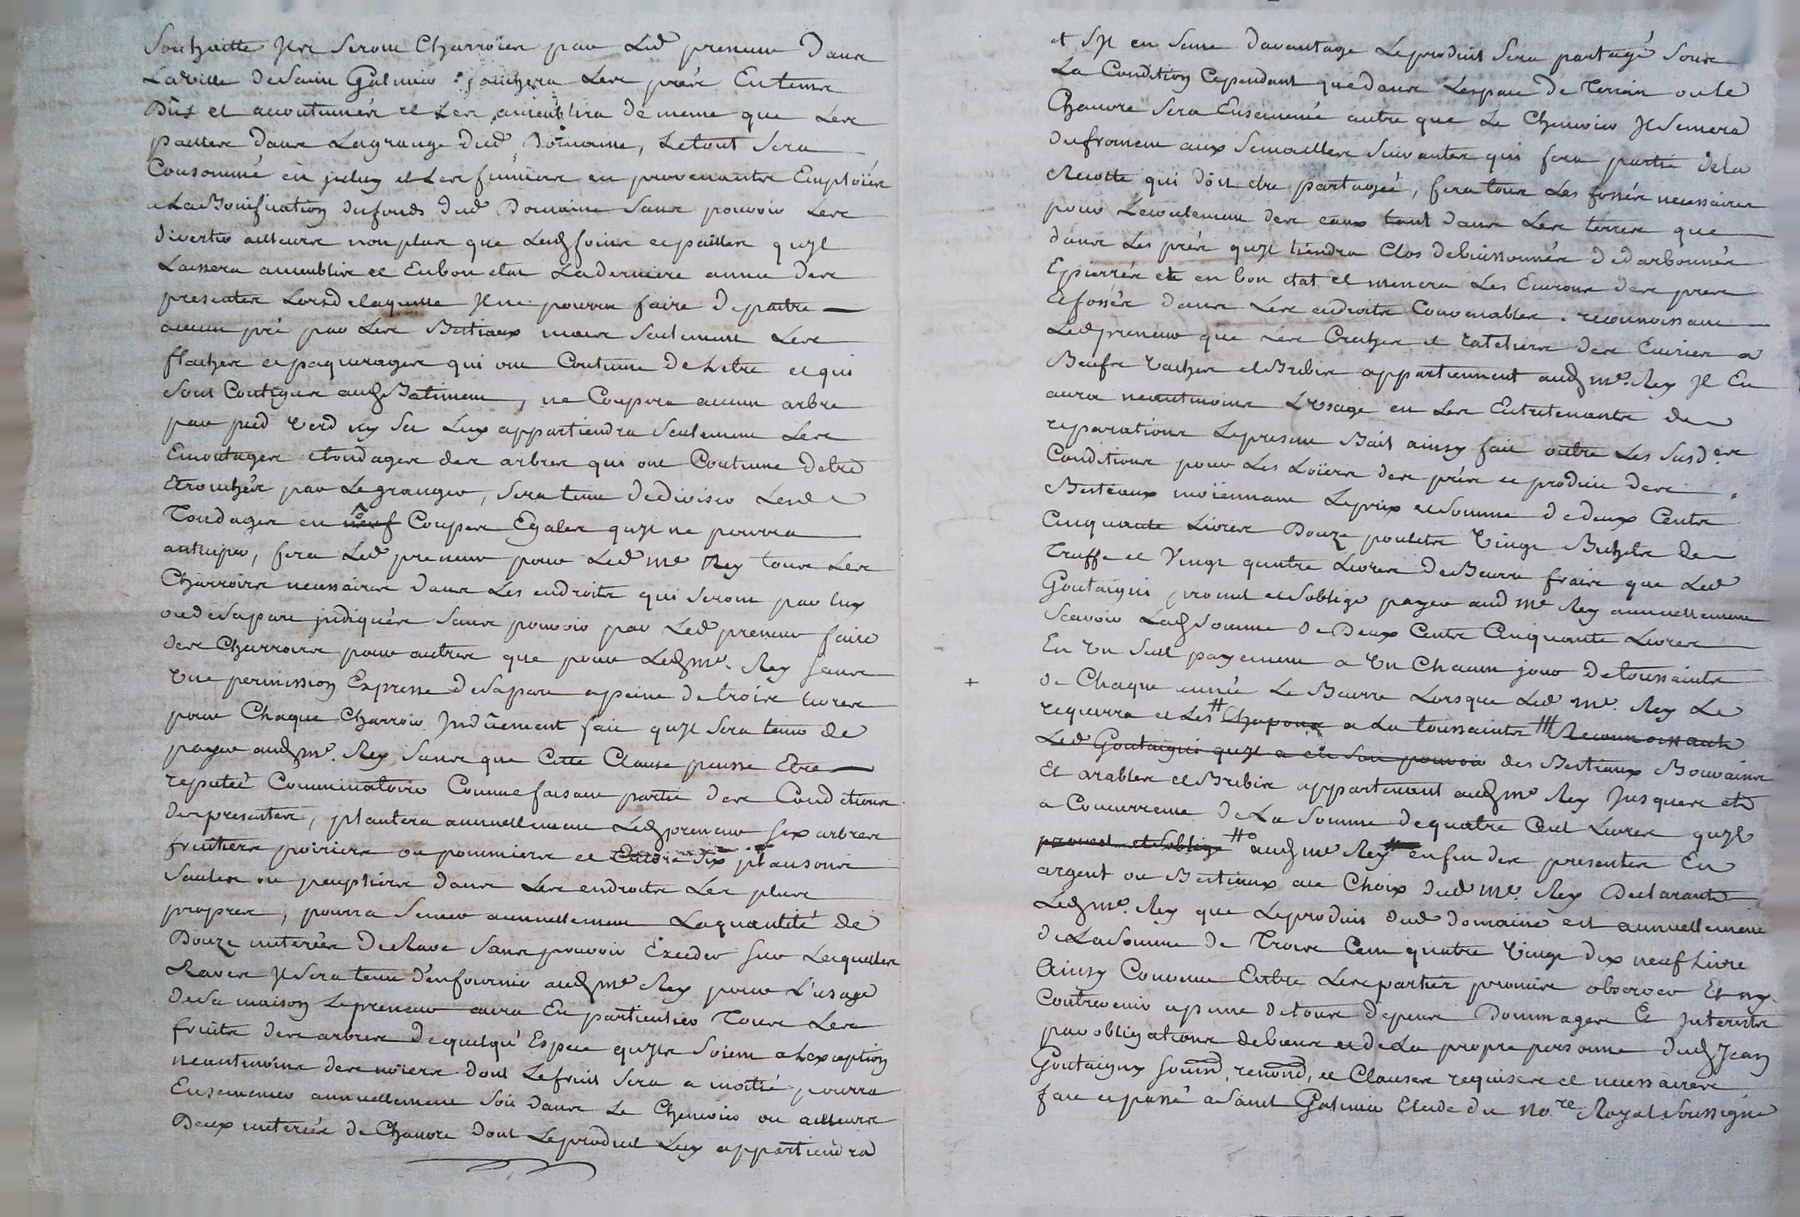 Souhaitte Ils Seront Charroiés par Led preneur dans
La Ville de Saint Galmier fauchera Les prés En tems
Dûs et accoutumés et Les ameublira de meme que Les
pailles dans La grange dud Domaine, Le tout Sera
Consommé en jceluy et Les fumiers en provenants Emploiés
a La Bonification du fonds dud Domaine Sans pouvoir Les
divertir ailleurs non plus que Lesd foins et pailles quyl
Laissera ameublis et En bon etat La derniere année des
presentes Lors de laquelle Il ne pourra faire depaitre
aucun pré par Les Bestiaux mais Seulement Les
flaches et paquerages qui ont Coutume de Letre et qui
Sont Contigus auxd Batiment, ne Coupera aucun arbre
par pied Verd ny Sec Luy appartiendra Seulement Les
Emontages etondages des arbres qui ont Coutume detre
Etronchés par Le granger, Sera tenu de diviser Lesd
Tondages en neuf Coupes Egales quyl ne pourra
anticiper, fera Led preneur pour Led Me Rey tous Les
Charrois necessaires dans Les endroits qui Seront par luy
ou de Sa part jndiqués Sans pouvoir par Led preneur faire
des Charrois pour autres que pour Led Me. Rey Sans
Une permission Expresse de Sa part a peine de trois Livres
pour Chaque Charroir Induëment fait quyl Sera tenu de
payer aud Me. Rey Sans que Cette Clause puisse Etre
reputée Comminatoire Comme faisant partie des Conditions
des presentes, plantera annuellement Led preneur Six arbres
fruitiers poiriers ou pommiers et Encore dix plansons
Saules ou peupliers dans Les endroits Les plus
propres, pourra Semer annuellement La quantité de
Douze meterées de Rave Sans pouvoir Exceder Sur Lesquelles
Raves Il Sera tenu d'en fournir aud Me Rey pour L'usage
de Sa maison Le preneur aura En particulier Tous Les
fruits des arbres de quelqué Espece quyls Soient a Lexception
neantmoins des noiers dont Le fruit Sera a moitié pourra
Ensemencer annuellement Soit dans Le Chenevier ou ailleurs
Deux meterées de Chanvre dont Le produit Luy appartiendra
et Syl en Seme davantage Le produit Sera partagé Sous
La Condition Cependant que dans Lespace de Terrein ou le
Chanvre Sera Ensemencé autre que Le Chenevier Il Semera
du froment aux Semailles Suivantes qui fera partie de la
Recolte qui doit etre partagée, fera tous Les fossés necessaires
pour Lecoulement des eaux tant dans Les terres que
dans Les prés quyl tiendra Clos debuissonnés dedarbonnés
Epierrés et en bon etat et menera Les Eaux des prés
Et fossés dans Les endroits Convenables. reconnoissant
Led preneur que Les Creches et rateliers des Ecuries a
Bœufs Vaches et Brebis appartiennent aud Me. Rey Il En
aura neantmoins L'Usage en Les Entretenants de
reparations Le present Bail ainsy fait outre Les Susd es
Conditions pour Les Loïers des prés et produit des
Bestiaux moïennant Le prix et Somme de deux Cents
Cinquante Livres Douze poulets Vingt Bichets de
Truffe et Vingt quatre Livres de Beurre frais que Led
Goutaigni promet et Soblige payer aud Me Rey annuellement
Scavoir Lad Somme de Deux Cents Cinquante Livres
En Un Seul payement a Un Chacun jour de toussaints
de Chaque année Le Beurre Lorsque Led Me. Rey Le
requerra et Les # Chapons a La toussaints # Reconnoissant
Led Goutaigni quyl a en Son pouvoir des Bestiaux Bouvains
Et arables et Brebis appartenant aud Me Rey Jusques et
a Concurrence de La Somme de quatre Cent Livres quyl
promet et Soblige # aud Me Rey en fin des presentes En
argent ou Bestiaux au Choix dud Me. Rey Declarants
Led Me. Rey que Le produit dud domaine est annuellement
de La Somme de Trois Cent quatre Vingt dix neuf Livre
Ainsy Convenu Entre Les parties promis observer Et ny
Contrevenir a peine de tous depens Dommages Et Interests
par obligations de biens et de La propre personne dud Jean
Goutaigny Soumd, renond, et Clauses requises et necessaires
fait et passé a Saint Galmier Etude du No.re Royal Soussigné